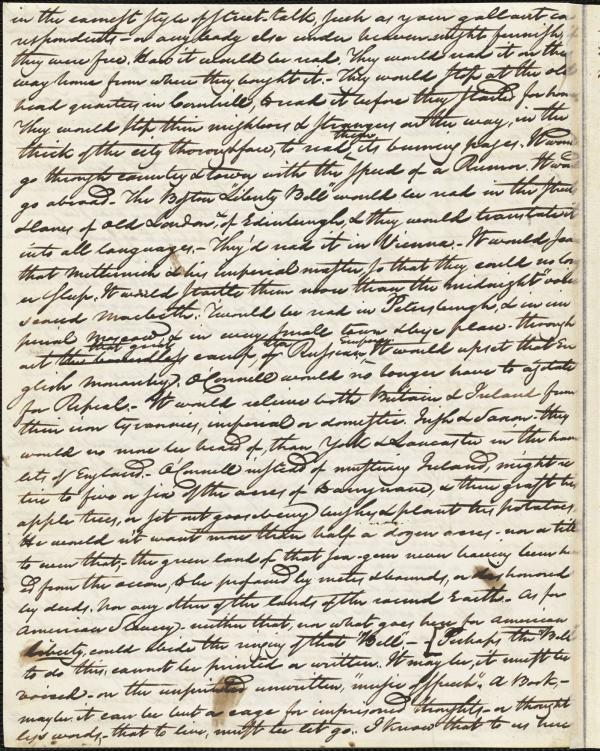 in the earnest style of street-talk, such as your gallant co
respondents - or any body else under heaven might furnish, if
they were free. How it would be read. They would read it on the
way home from where they bought it. - They would stop at the old
head quarters in Cornhill, & read it before they started for home
They would stop their neighbors & strangers on the way, in the
thick of the city thoroughfare, to read them its burning pages. It would
go through country & town with the speed of a Rumor. It would
go abroad. - The Boston "Liberty Bell" would be read in the streets
& lanes of old London & of Edinburgh, & they would translate it
into all languages. - They'd read it in Vienna. - It would scare
that Metternich & his imperial master, so that they could no lon
er sleep. It would startle them more than the midnight "voice
scared Macbeth. 'Twould be read in Petersburgh, & in im
perial Moscow & in every small town & lone place - through
out that great camp, the Russian Empire. It would upset that En
glish monarchy. O'Connell would no longer have to agitate
for Repeal. - It would release both Britain & Ireland from
their iron tyrannies, imperial or domestic. Irish & Saxon - they
would no more be heard of, than York & Lancaster in the ham
lets of England. - O'Connell instead of mustering Ireland, might re
tire to five or six of the acres of Darrynane, & there graft his
apple trees, or set out gooseberry bushes & plant his potatoes.
He would n't want more than half a dozen acres - nor a title
to even that - the green land of that sea-gem never having been
ed from the ocean, to be profaned by metes & bounds, or dishonored
by deeds. Nor any other of the lands of the round Earth. - As for
American slavery - neither that, nor what goes here for american
liberty, could abide the ringing of that "Bell - [Perhaps the "Bell
to do this, cannot be printed or written. It may be, it must be
voiced - on the unprinted unwritten, "music of speech". A Book, -
maybe, it can be but a cage for imprisoned thoughts - or thought
les words, - that to live, must be let go. I know that to us here